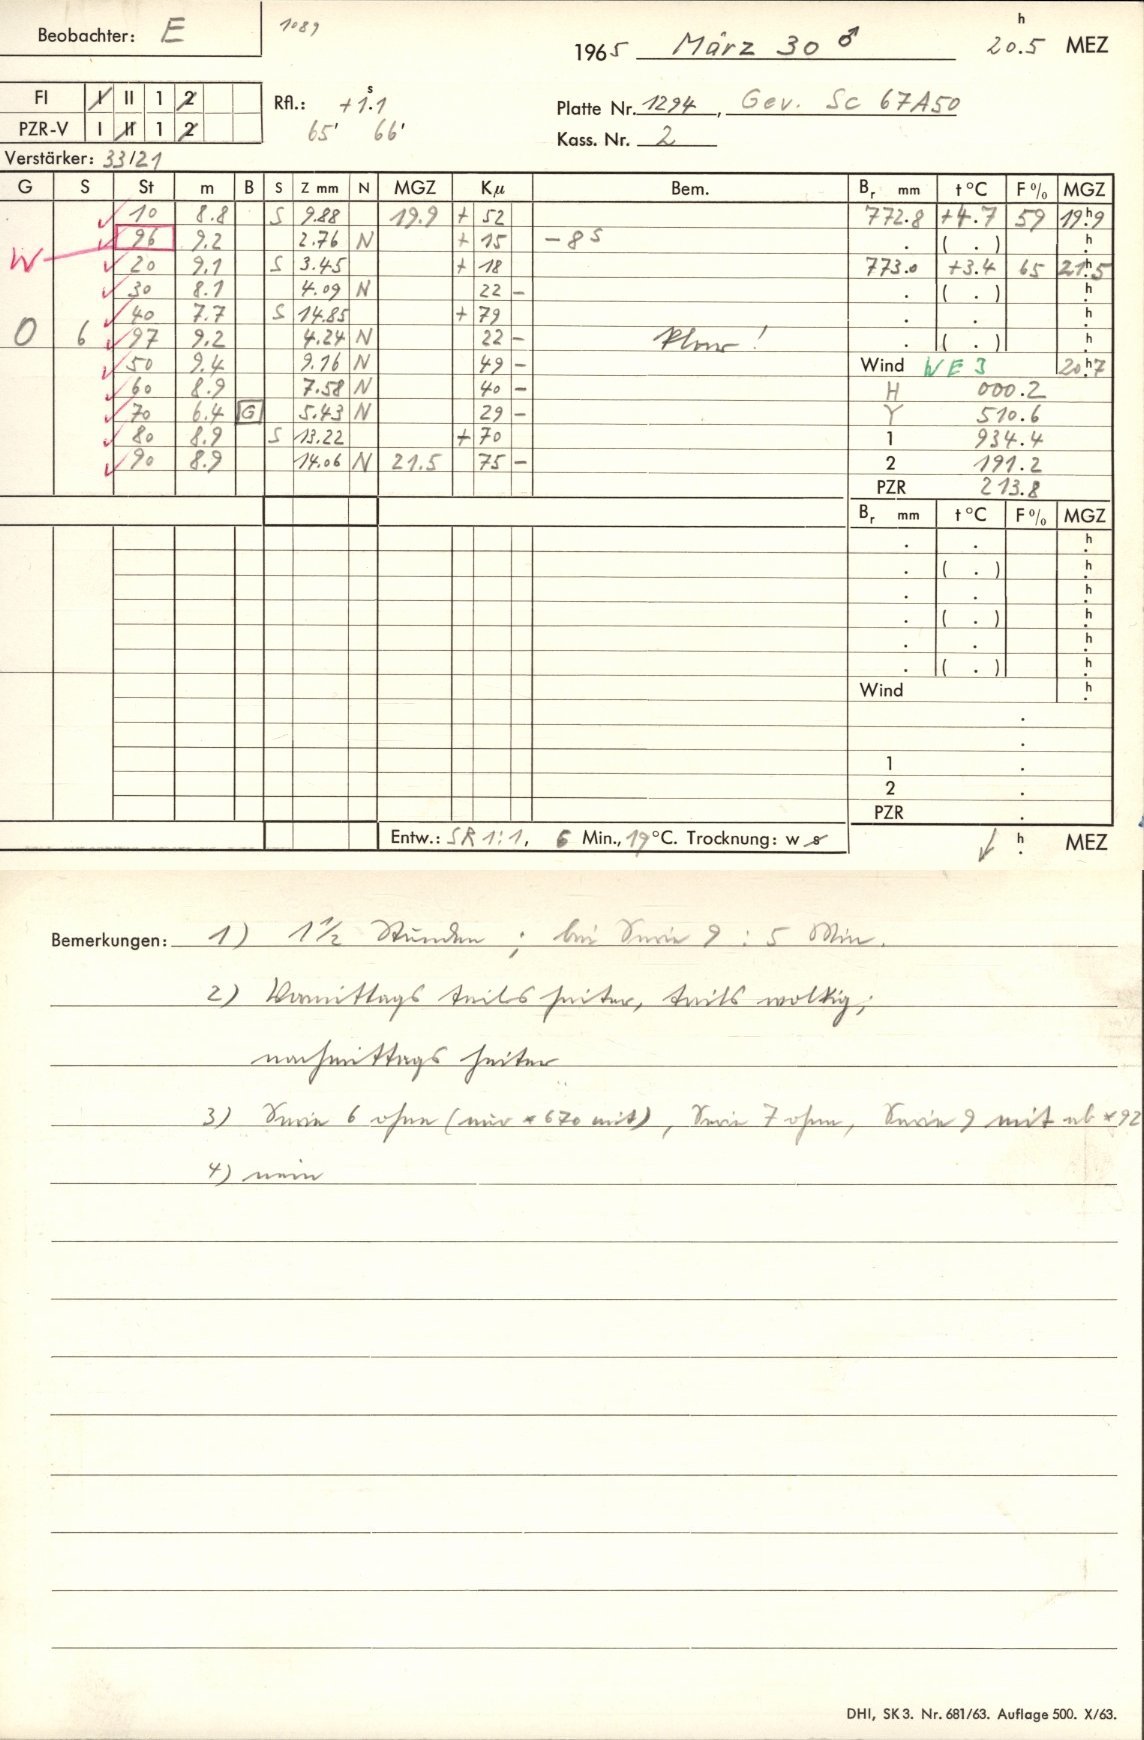 Beobachter: E 1089
1965 März 30 ♂ 20.5 h MEZ
FI I II 1 2
PZR-V I II 1 2
Rfl.: +1.1 s
65' 66'
Platte Nr. 1294, Gev. Sc 67A50
Kass. Nr. 2
Verstärker: 33/21
G S St m B S Z mm N MGZ Kμ Bem. Br mm t °C F % MGZ
10 8.8 S 9.88 19.9 + 52 772.8 +4.7 59 19h9
W 96 9.2 2.76 N + 15 - 8 s . ( . ) h.
20 9.1 S 3.45 + 18 773.0 +3.4 65 21h5
30 8.1 4.09 N 22 - . ( . ) h.
40 7.7 S 14.85 + 79 . . h.
O 6 97 9.2 4.24 N 22 - Klar! . ( . ) h.
50 9.4 9.16 N 49 - Wind WE 3 20h7
60 8.9 7.58 N 40 - H 000.2
70 6.4 G 5.43 N 29 - Y 510.6
80 8.9 S 13.22 + 70 1 934.4
90 8.9 14.06 N 21.5 75 - 2 191.2
PZR 213.8
Br mm t °C F % MGZ
. . h.
. ( . ) h.
. . h.
. ( . ) h.
. . h.
. ( . ) h.
Wind h.
.
.
1 .
2 .
PZR .
Entw.: SR 1:1, 6 Min., 19 °C. Trocknung: w s
h. MEZ
Bemerkungen: 1) 1½ Stunden; bei Serie 9 : 5 Min.
2) Vormittags teils heiter, teils wolkig;
nachmittags heiter
3) Serie 6 ohne (nur *670 mit), Serie 7 ohne, Serie 9 mit ab *92
4) nein
DHI, SK 3. Nr. 681/63. Auflage 500. X/63.